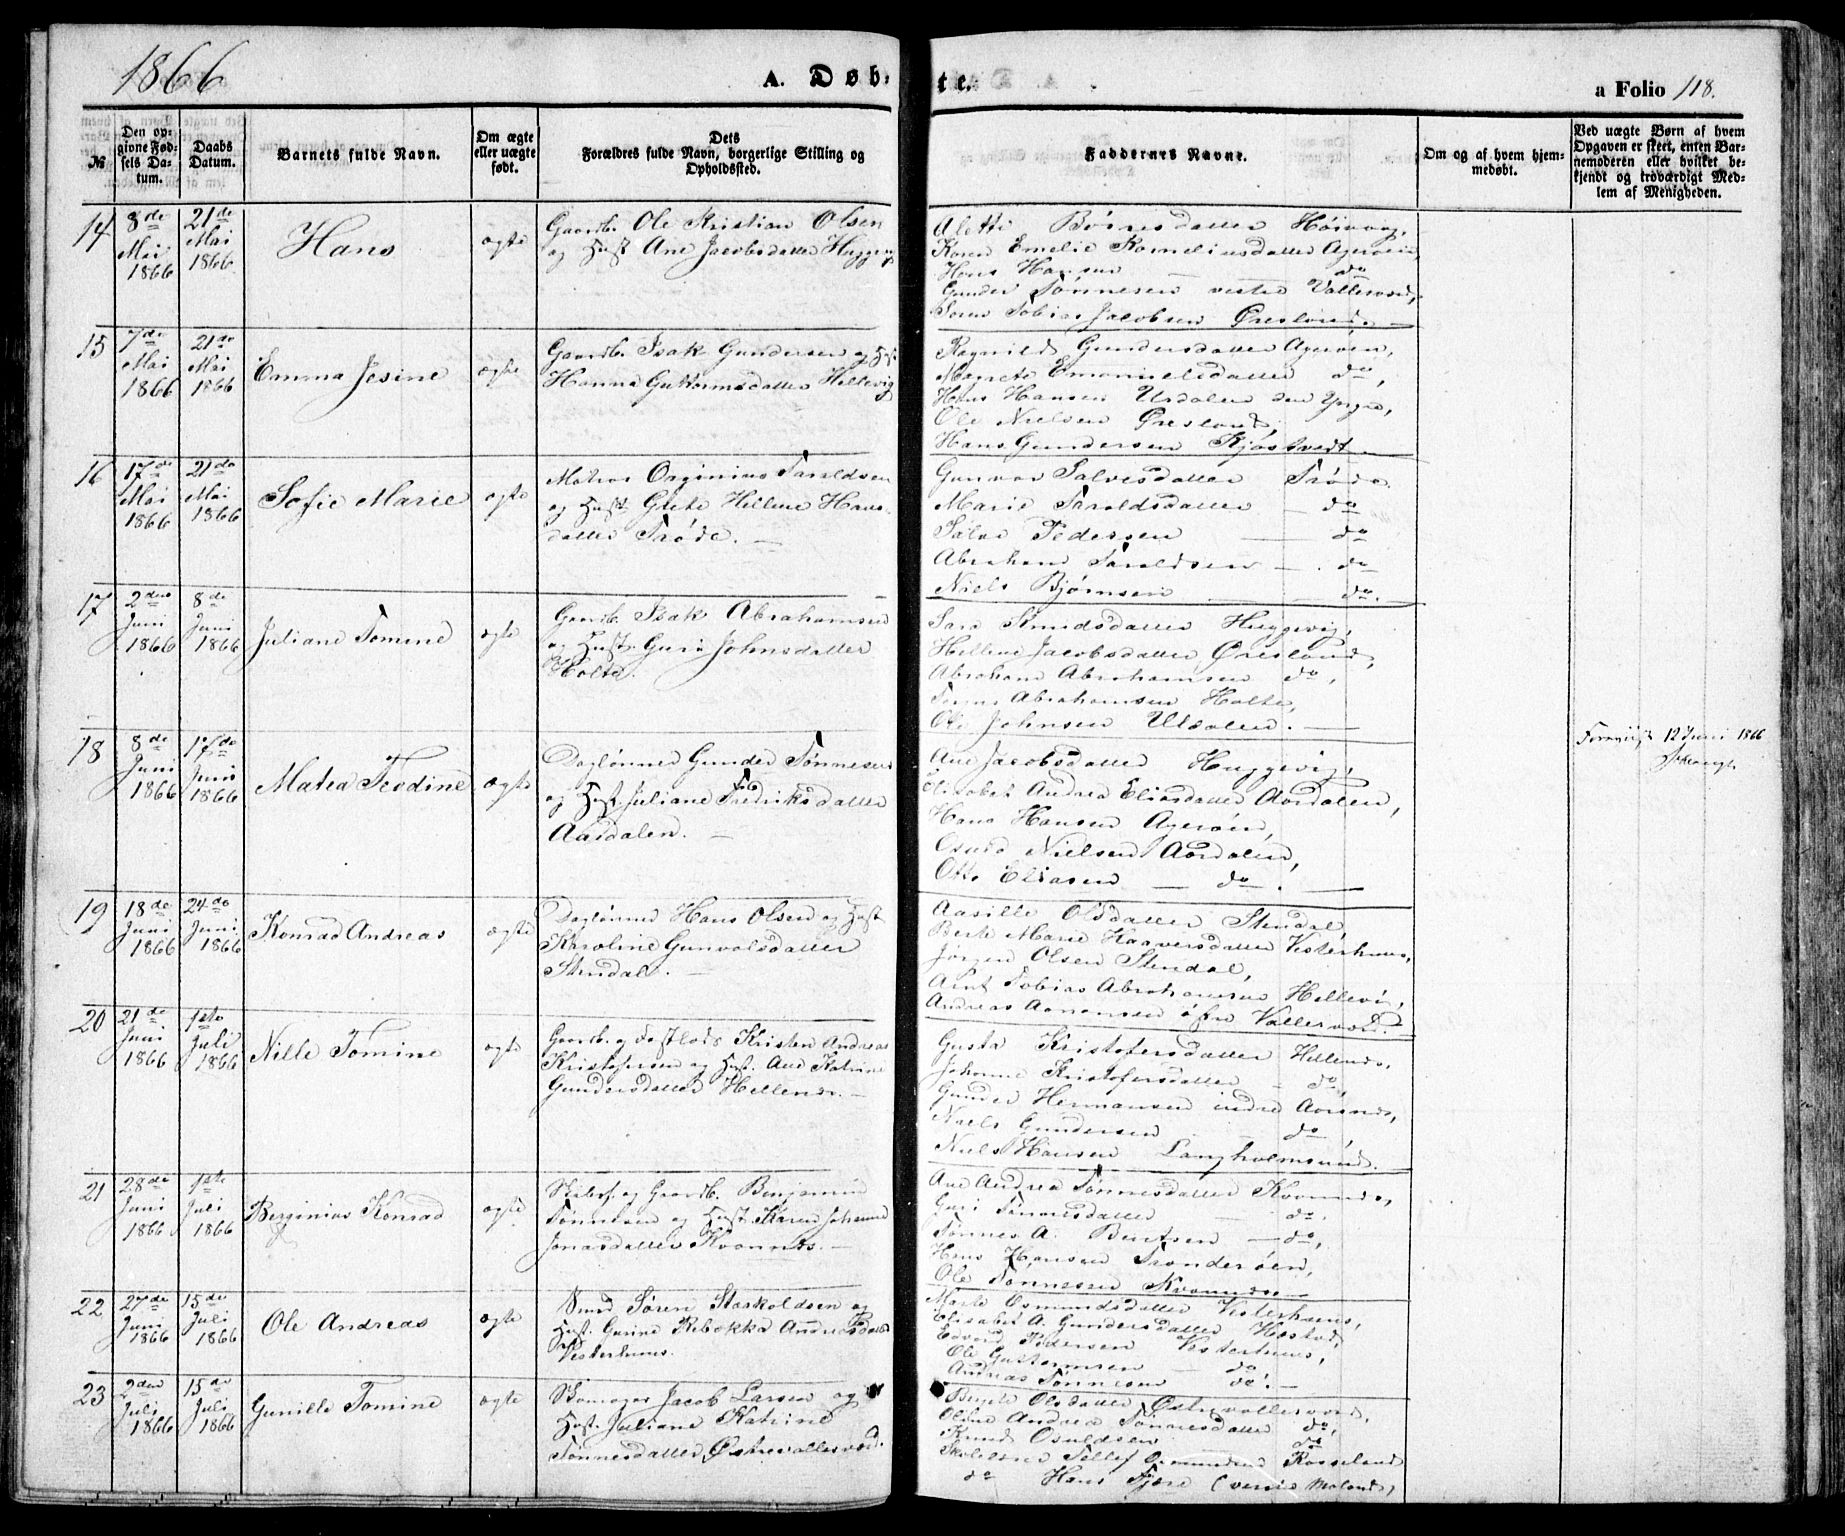 1866
A. Døbte.
a Folio 118.
№
Den opgivne Fødsels Datum.
Daabs Datum.
Barnets fulde Navn.
Om ægte eller uægte født.
Dets Forældres fulde Navn, borgerlige Stilling og Opholdssted.
Faddernes Navne.
Om og af hvem hjemmedøbt.
Ved uægte Børn af hvem Opgaven er skeet, enten Barnemoderen eller hvilket bekjendt og troværdigt Medlem af Menigheden.
14
8de Mai 1866
21de Mai 1866
Hans
ægte
Gaardb. Ole Kristian Olsen
og Hust Ane Jacobsdatter Huggevig
Børresdatter Høivaag,
Karen Emelie Korneliusdatter Agerøen,
Hans Hansen — do
Gunder Tønnesen vestre Vallesverd,
Tobias Jacobsen Øresland. —
15
7de Mai 1866
21de Mai 1866
Emma Jesine
ægte
Gaardb. Isak Gundersen og Hust
Hanna Guttormsdatter Hellevig
Ragnild Gundersdatter Agerøen,
Emanuelsdatter do,
Hans Hansen Urdalen den Yngre,
Ole Nielsen Øresland,
Hans Gundersen Kjøstvedt —
16
17de Mai 1866
21de Mai 1866
Sofie Marie
ægte
Matros Orginius Taraldsen
og Hust Grete Hellene Hans-
datter Trøde. —
Gunvor Salvesdatter Trøde.
Marie Taraldsdatter — do
Pedersen — do
Abraham Taraldsen — . do
Niels Bjørnsen — do. —
17
2den Juni 1866
8de Juni 1866
Juliane Tomine
ægte
Gaardb. Isak Abrahamsen
og Hust. Guri Johnsdatter
Holte.
Sara Knudsdatter Huggevig,
Hellene Jacobsdatter Øresland,
Abraham Abrahamsen do,
Abrahamsen Holte,
Ole Johnsen Urdalen. —
18
8de Juni 1866
17de Juni 1866
Matea Teodine
ægte
Daglønner Gunder Tønnesen
og Hust Juliane Fredriksdatter
Aasdalen. —
Ane Jacobsdatter Huggevig,
Elisabet Andrea Eliasdatter Aasdalen,
Hans Hansen Agerøen,
Nielsen Aasdalen,
Otto Eliasen — do . —
12 Juni 1866
19
18de Juni 1866
24de Juni 1866
Konrad Andreas
ægte
Daglønner Hans Olsen og Hust
Karoline Gunvalsdatter
Stendal. —
Aasille Olsdatter Stendal,
Berte Marie Haaversdatter Vesterhuus,
Jørgen Olsen Stendal,
Arnt Tobias Abrahamsen Hellevig,
Andreas Aanonsen øfre Vallesverd. —
20
21de Juni 1866
1ste Juli 1866
Nille Tomine
ægte
Gaardb. og Kristen Andreas
Kristofersen og Hust. Ane Katrine
Gundersdatter Hellenes. —
Gusta Kristofersdatter Hellenes,
Johanne Kristofersdatter — do,
Gunder Hermansen indre Aarsnes,
Niels Gundersen — do,
Niels Hansen Langholmsund.
21
28de Juni 1866
1ste Juli 1866
Berginius Konrad
ægte
og Gaardb. Benjamin
Tønnesen og Hust Karen Johanne
Jonasdatter Kvannes. —
Ane Andrea Tønnesdatter Kvannes,
Guri Tønnesdatter — do.
Tønnes A. Bentsen — do,
Hans Hansen Trønderøen,
Ole Tønnessen Kvannes —
22
27de Juni 1866
15de Juli 1866
Ole Andreas
ægte
Smed Søren Staskoldsen og
Hust. Gurine Rebekka Andreasdatter
Vesterhuus.
Marte Osmundsdatter Vesterhuus,
Elisabet A. Gundersdatter Hæstad,
Edvard Pedersen Vesterhuus,
Ole Guttormsen — do
Andreas Tønnesen do. —
23
2den Juli 1866
15de Juli 1866
Gunille Tomine
ægte
Skomager Jacob Larsen og
Hust. Juliane Katrine
Tønnesdatter Østrevallesverd.
Bergte Olsdatter Østrevallesverd,
Oline Andrea Tønnesdatter do,
Knud Osuldsen do
Tellef Osmundsen Rosseland
do Hans Fjære (vestre Moland)